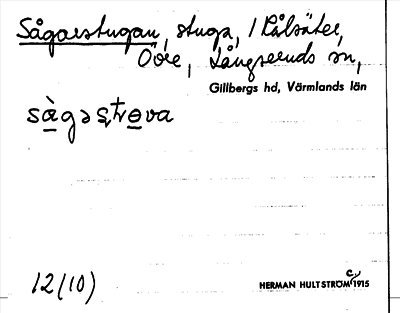 Sågarestugan, stuga, / Rålsäter,
Övre, Långseruds sn,
Gillbergs hd, Värmlands län
sàgəstrova
12(10)
HERMAN HULTSTRÖM C/1915